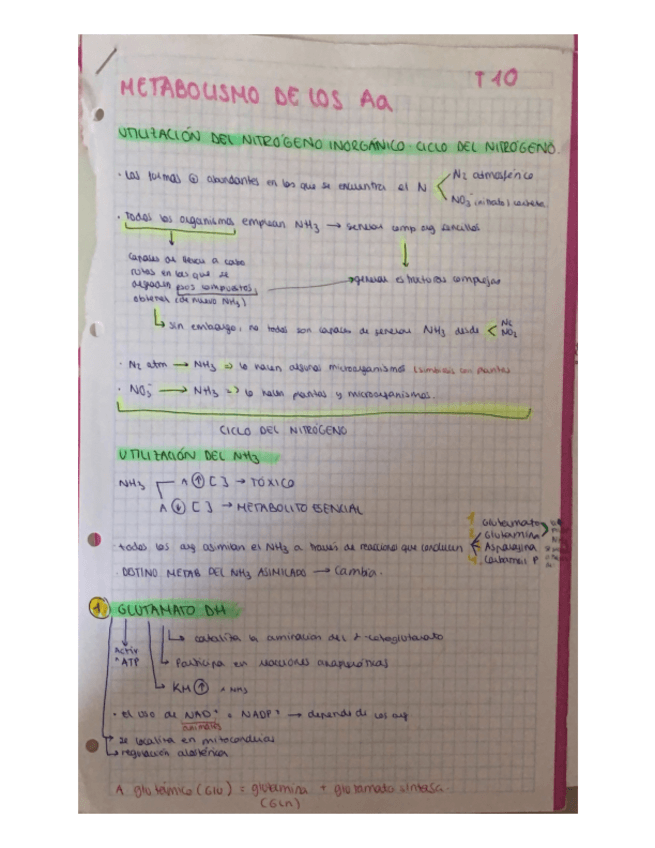 T 10
METABOLISMO DE LOS Aa
UTILIZACIÓN DEL NITRÓGENO INORGÁNICO. CICLO DEL NITRÓGENO.
· Las formas ⊕ abundantes en las que se encuentra el N
N₂ atmosférico
NO₃⁻ (nitrato)
· Todos los organismos emplean NH₃ → generar comp org sencillos
capaces de llevar a cabo
rutas en las que se
degradan sus compuestos,
obtener (de nuevo NH₃)
→ generar estructuras complejas
sin embargo, no todos son capaces de generar NH₃ desde
N₂
NO₂
· N₂ atm → NH₃ => lo hacen algunos microorganismos (simbiosis con plantas
· NO₃⁻ → NH₃ => lo hacen plantas y microorganismos.
CICLO DEL NITRÓGENO
UTILIZACIÓN DEL NH₃
NH₃
A ↑ [ ] → TÓXICO
A ↓ [ ] → METABOLITO ESENCIAL
· todos los org asimilan el NH₃ a través de reacciones que conducen
1 Glutamato
2 Glutamina
Asparagina
4. Carbamoil P
· DESTINO METAB DEL NH₃ ASIMILADO → Cambia.
1 GLUTAMATO DH
Activ
ATP
cataliza la aminación del α-cetoglutarato
Participa en reacciones anapleróticas
KM ↑ NH₃
· el uso de NAD⁺ NADP⁺ → depende de los org
animales
se localiza en mitocondrias
regulación alostérica
A. glutámico (Glu) = glutamina + glutamato sintasa.
(Gln)